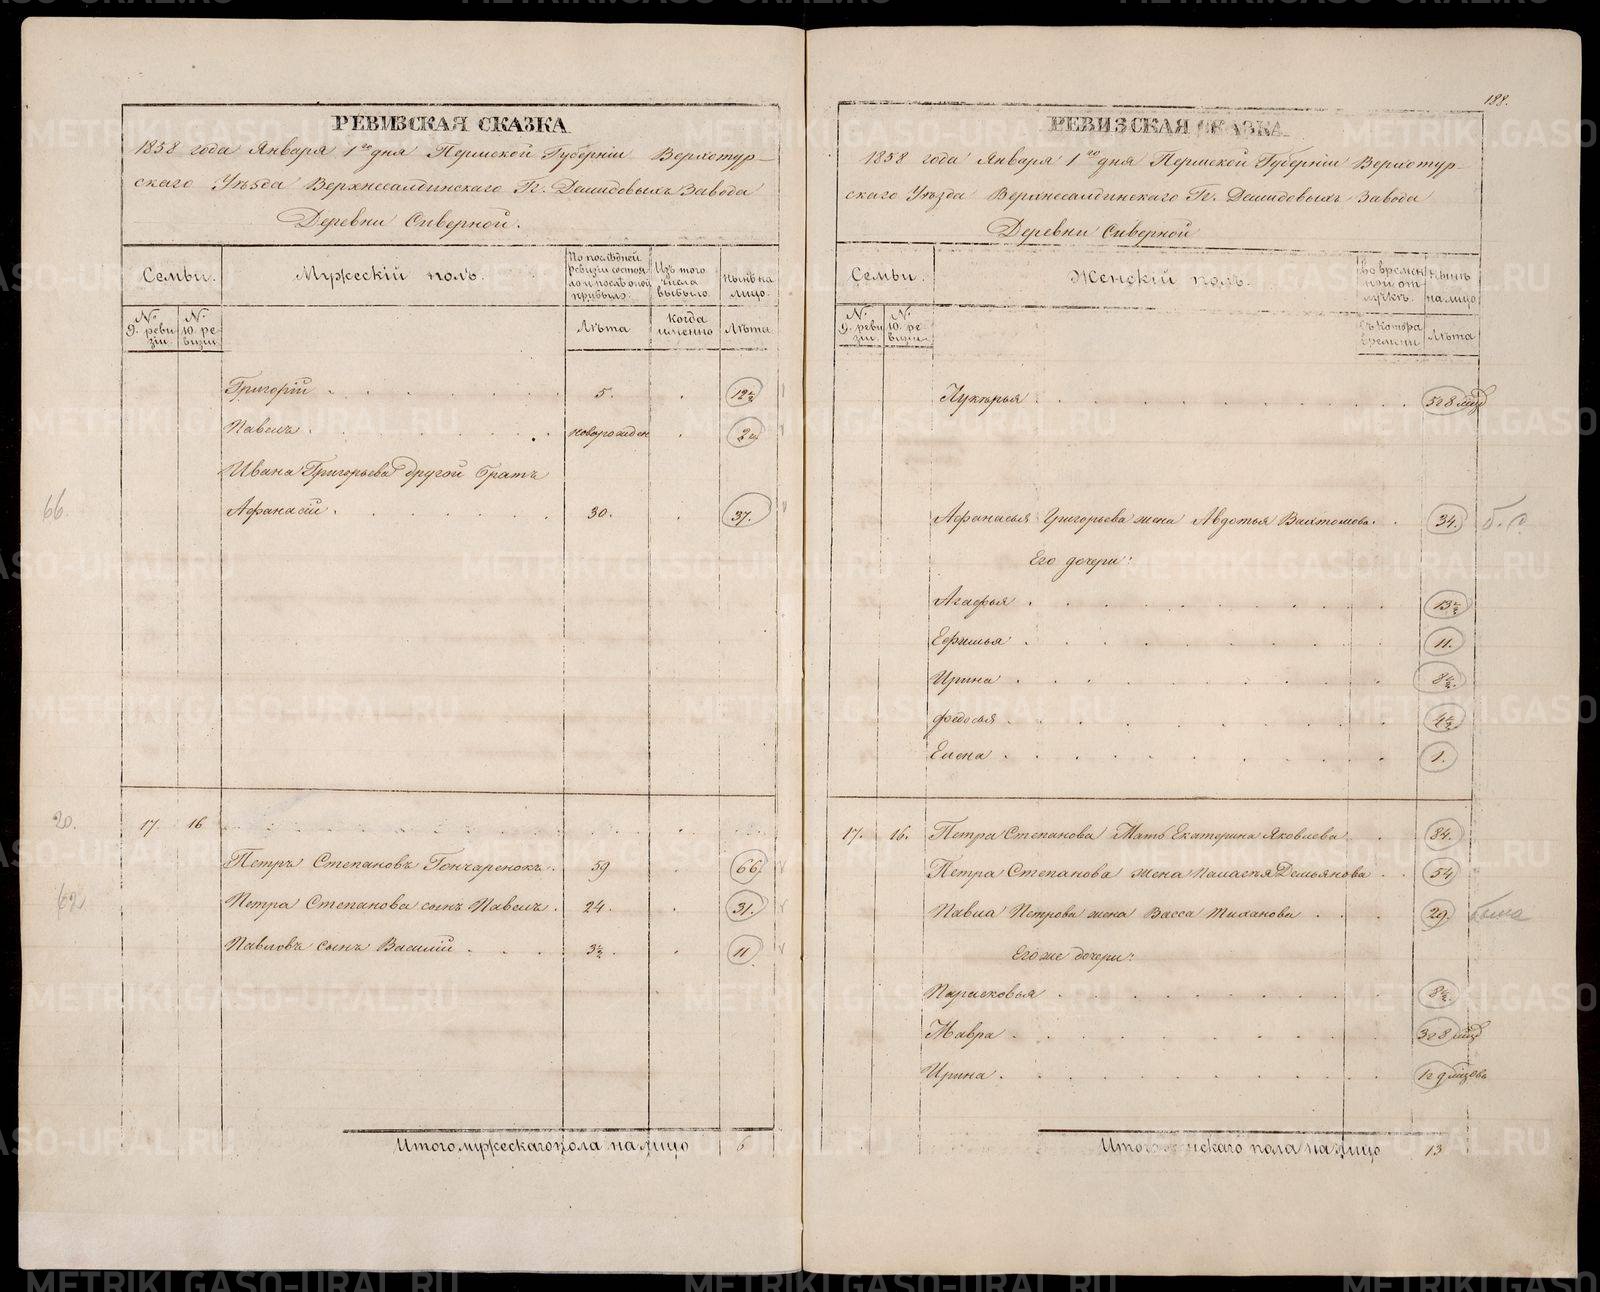 РЕВИЗСКАЯ СКАЗКА
1858 года Января 1го дня Пермской Губерніи Верхотур-
скаго Уѣзда Верхнесалдинскаго Гг. Демидовыхъ Завода
Деревни Сиверной.
Семьи.
Мужескій полъ.
По послѣдней ревизіи состояло и послѣ оной прибыло.
Изъ того числа выбыло.
Нынѣ на лицо.
№ 9. ревизіи.
№ 10. ревизіи.
Лѣта
Когда именно
Лѣта
Григорій 5. 12½
Павелъ новорожден 7½
Ивана Григорьева другой братъ
66.
Афанасій 30. 37.
20. 17. 16
Петръ Степановъ Гончаренокъ. 59 66
Петра Степанова сынъ Павелъ. 24. 31.
Павловъ сынъ Василій 3½ 11
Итого мужескаго пола на лицо 6
188.
РЕВИЗСКАЯ СКАЗКА
1858 года Января 1го дня Пермской Губерніи Верхотур-
скаго Уѣзда Верхнесалдинскаго Гг. Демидовыхъ Завода
Деревни Сиверной
Семьи.
Женскій полъ.
Во временной отлучкѣ.
Нынѣ на лицо.
№ 9. ревизіи.
№ 10. ревизіи.
Съ котора времени
Лѣта
Лукерья
Афанасья Григорьева жена Авдотья 34.
Его дочери:
Агафья 13½
Ефимья 11.
Ирина 8½
Федосья 4½
Елена 1.
17. 16. Петра Степанова Мать Екатерина Яковлева 84.
Петра Степанова жена Палагѣя Демьянова 54
Павла Петрова жена Васса Тиханова 29.
Его же дочери:
Парасковья 8½
Мавра 3 г 8 мцд
Ирина 1 г 9 мѣцовъ
Итого женскаго пола на лицо 13
METRIKI.GASO-URAL.RU